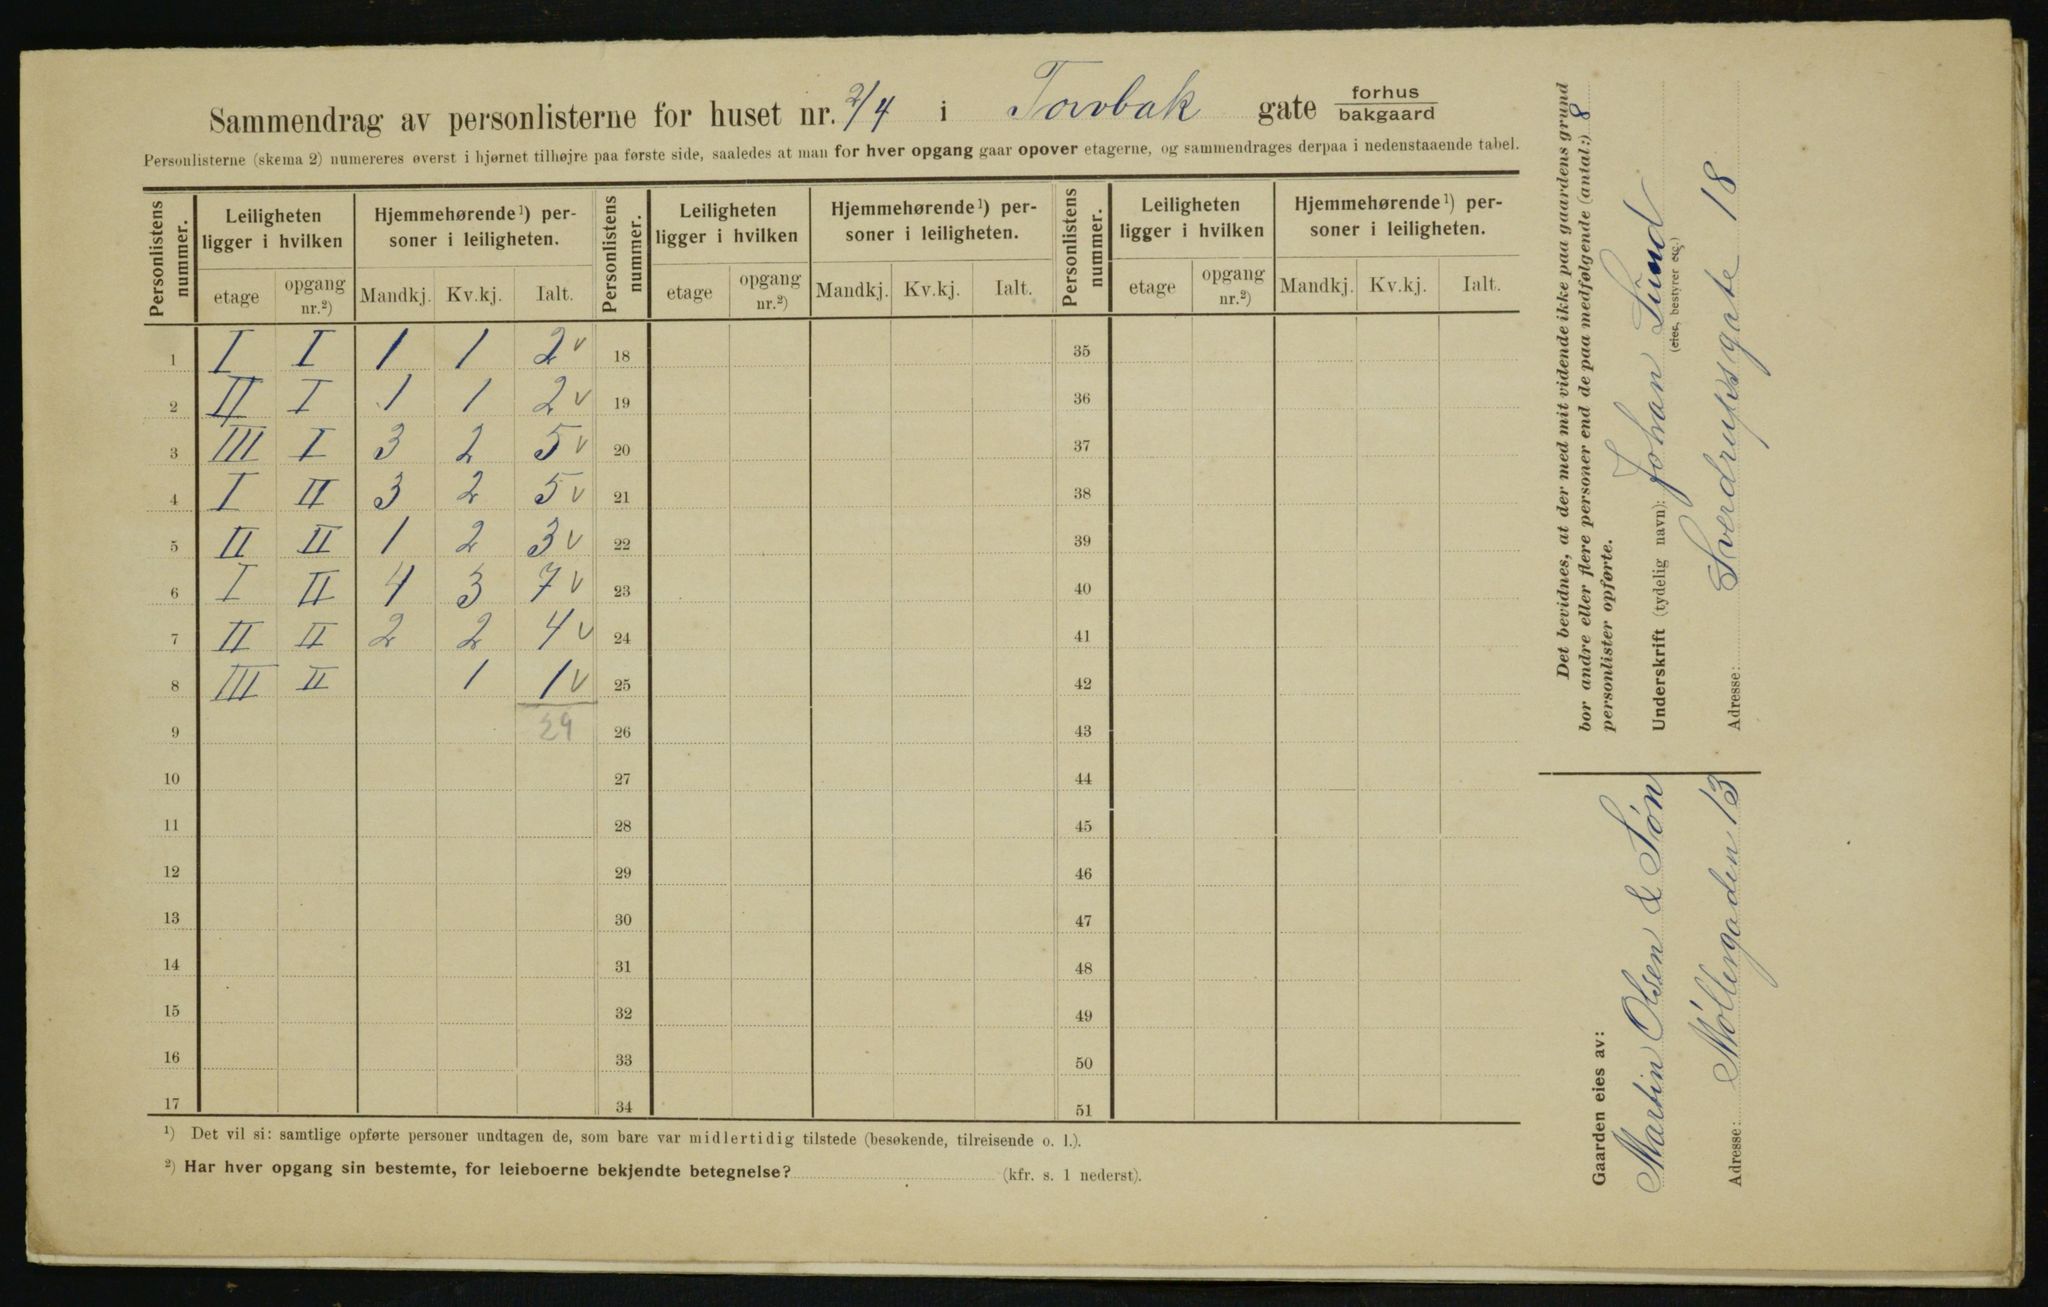 Sammendrag av personlisterne for huset nr. 2/4 i Torvbak gate forhus bakgaard
Personlisterne (skema 2) numereres øverst i hjørnet tilhøjre paa første side, saaledes at man for hver opgang gaar opover etagerne, og sammendrages derpaa i nedenstaaende tabel.
Personlistens nummer. Leiligheten ligger i hvilken Hjemmehørende¹) personer i leiligheten. Personlistens nummer. Leiligheten ligger i hvilken Hjemmehørende¹) personer i leiligheten. Personlistens nummer. Leiligheten ligger i hvilken Hjemmehørende¹) personer i leiligheten.
etage opgang nr.²) Mandkj. Kv.kj. Ialt. etage opgang nr.²) Mandkj. Kv.kj. Ialt. etage opgang nr.²) Mandkj. Kv.kj. Ialt.
1 I I 1 1 2 v 18 35
2 II I 1 1 2 v 19 36
3 III I 3 2 5 v 20 37
4 I II 3 2 5 v 21 38
5 II II 1 2 3 v 22 39
6 I II 4 3 7 v 23 40
7 II II 2 2 4 v 24 41
8 III II 1 1 v 25 42
9 29 26 43
10 27 44
11 28 45
12 29 46
13 30 47
14 31 48
15 32 49
16 33 50
17 34 51
¹) Det vil si: samtlige opførte personer undtagen de, som bare var midlertidig tilstede (besøkende, tilreisende o. l.).
²) Har hver opgang sin bestemte, for leieboerne bekjendte betegnelse? (kfr. s. 1 nederst).
Det bevidnes, at der med mit vidende ikke paa gaardens grund
bor andre eller flere personer end de paa medfølgende (antal:) 8
personlister opførte.
Underskrift (tydelig navn): Johan Lund
(eier, bestyrer etc.)
Adresse: Sverdrupsgate 18
Gaarden eies av:
Martin Olsen & Søn
Adresse: Møllergaden 13